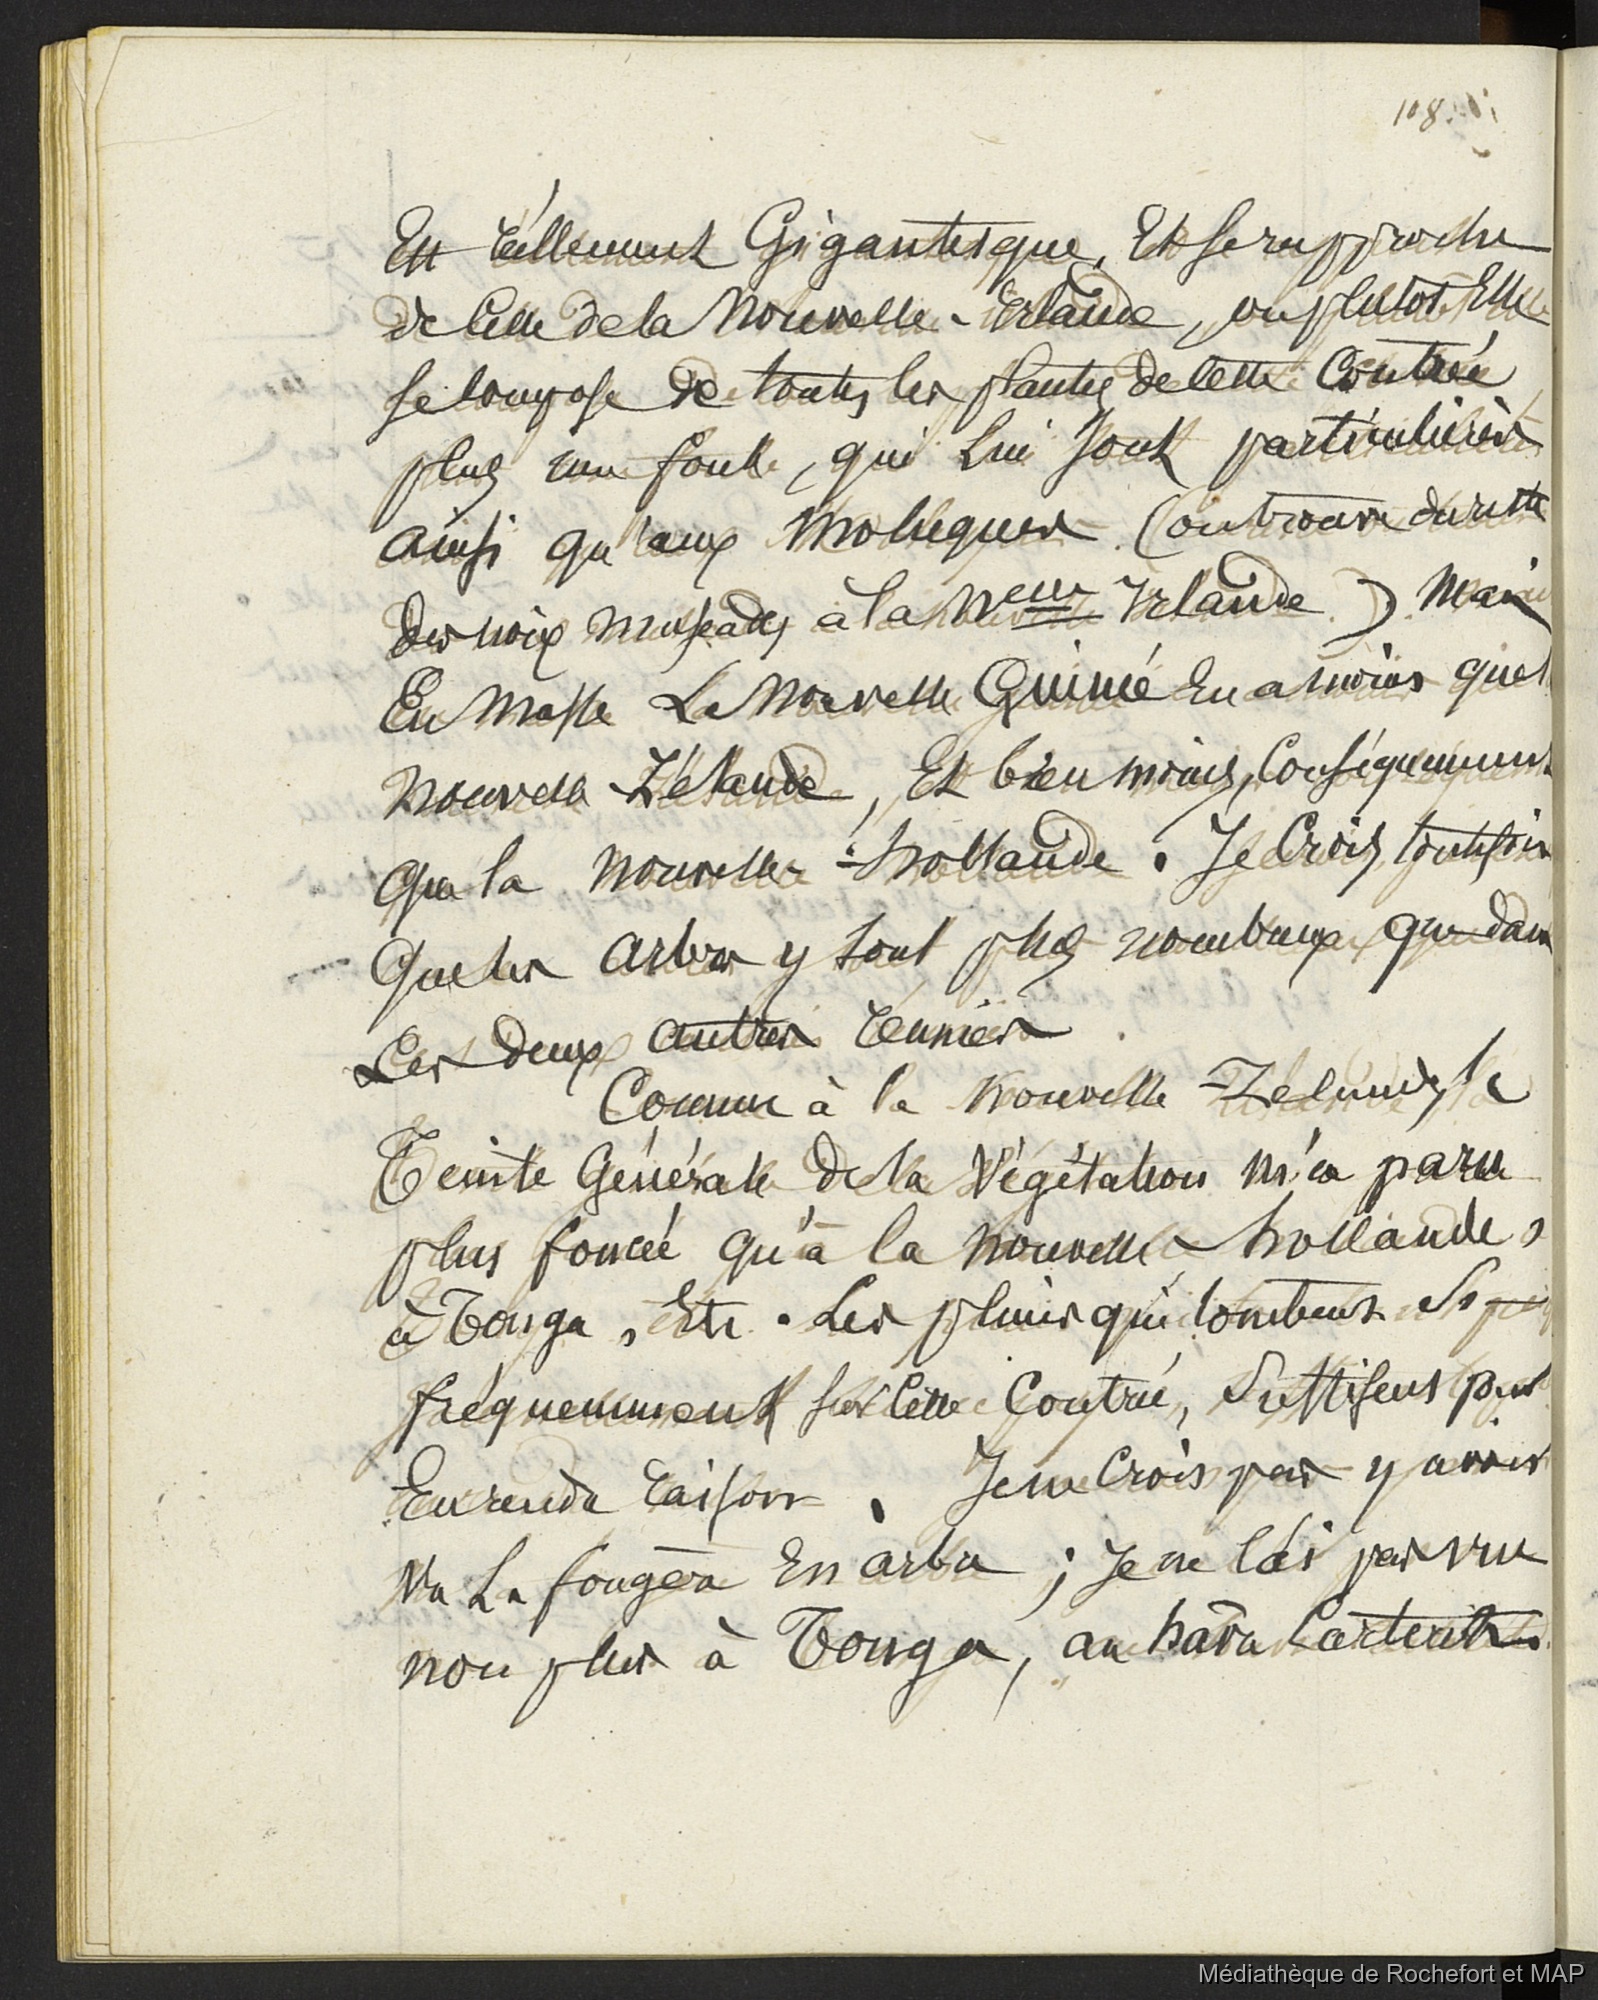 108.
Est tellement Gigantesque, Et se rapproche
de Celle de la Nouvelle-Irlande, ou plutot Elle
se Compose de toutes les plantes de Cette Contrée
plus une foule, qui Lui sont particulières
ainsi qu'aux Moluques. (on trouve
des noix muscades à la Neuve Irlande.) Mais
En Masse La Nouvelle Guinée En a moins que
Nouvelle Zélande, Et bien moins, Conséquemment
que la Nouvelle-hollande. Je Crois, toutefois
Que les arbres y sont plus nombreux que dans
Les deux autres
Comme à la Nouvelle-Zélande, la
Teinte Générale de la Végétation m'a paru
plus foncée qu'à la Nouvelle hollande,
à Tonga, Etc. Les pluies qui tombent Si
fréquemment sur Cette Contrée, Suffisent pour
En rendre raison. Je ne Crois pas y avoir
Vu La fougère En arbre ; Je ne l'ai pas vue
non plus à Tonga, au havre Carteret.
Médiathèque de Rochefort et MAP